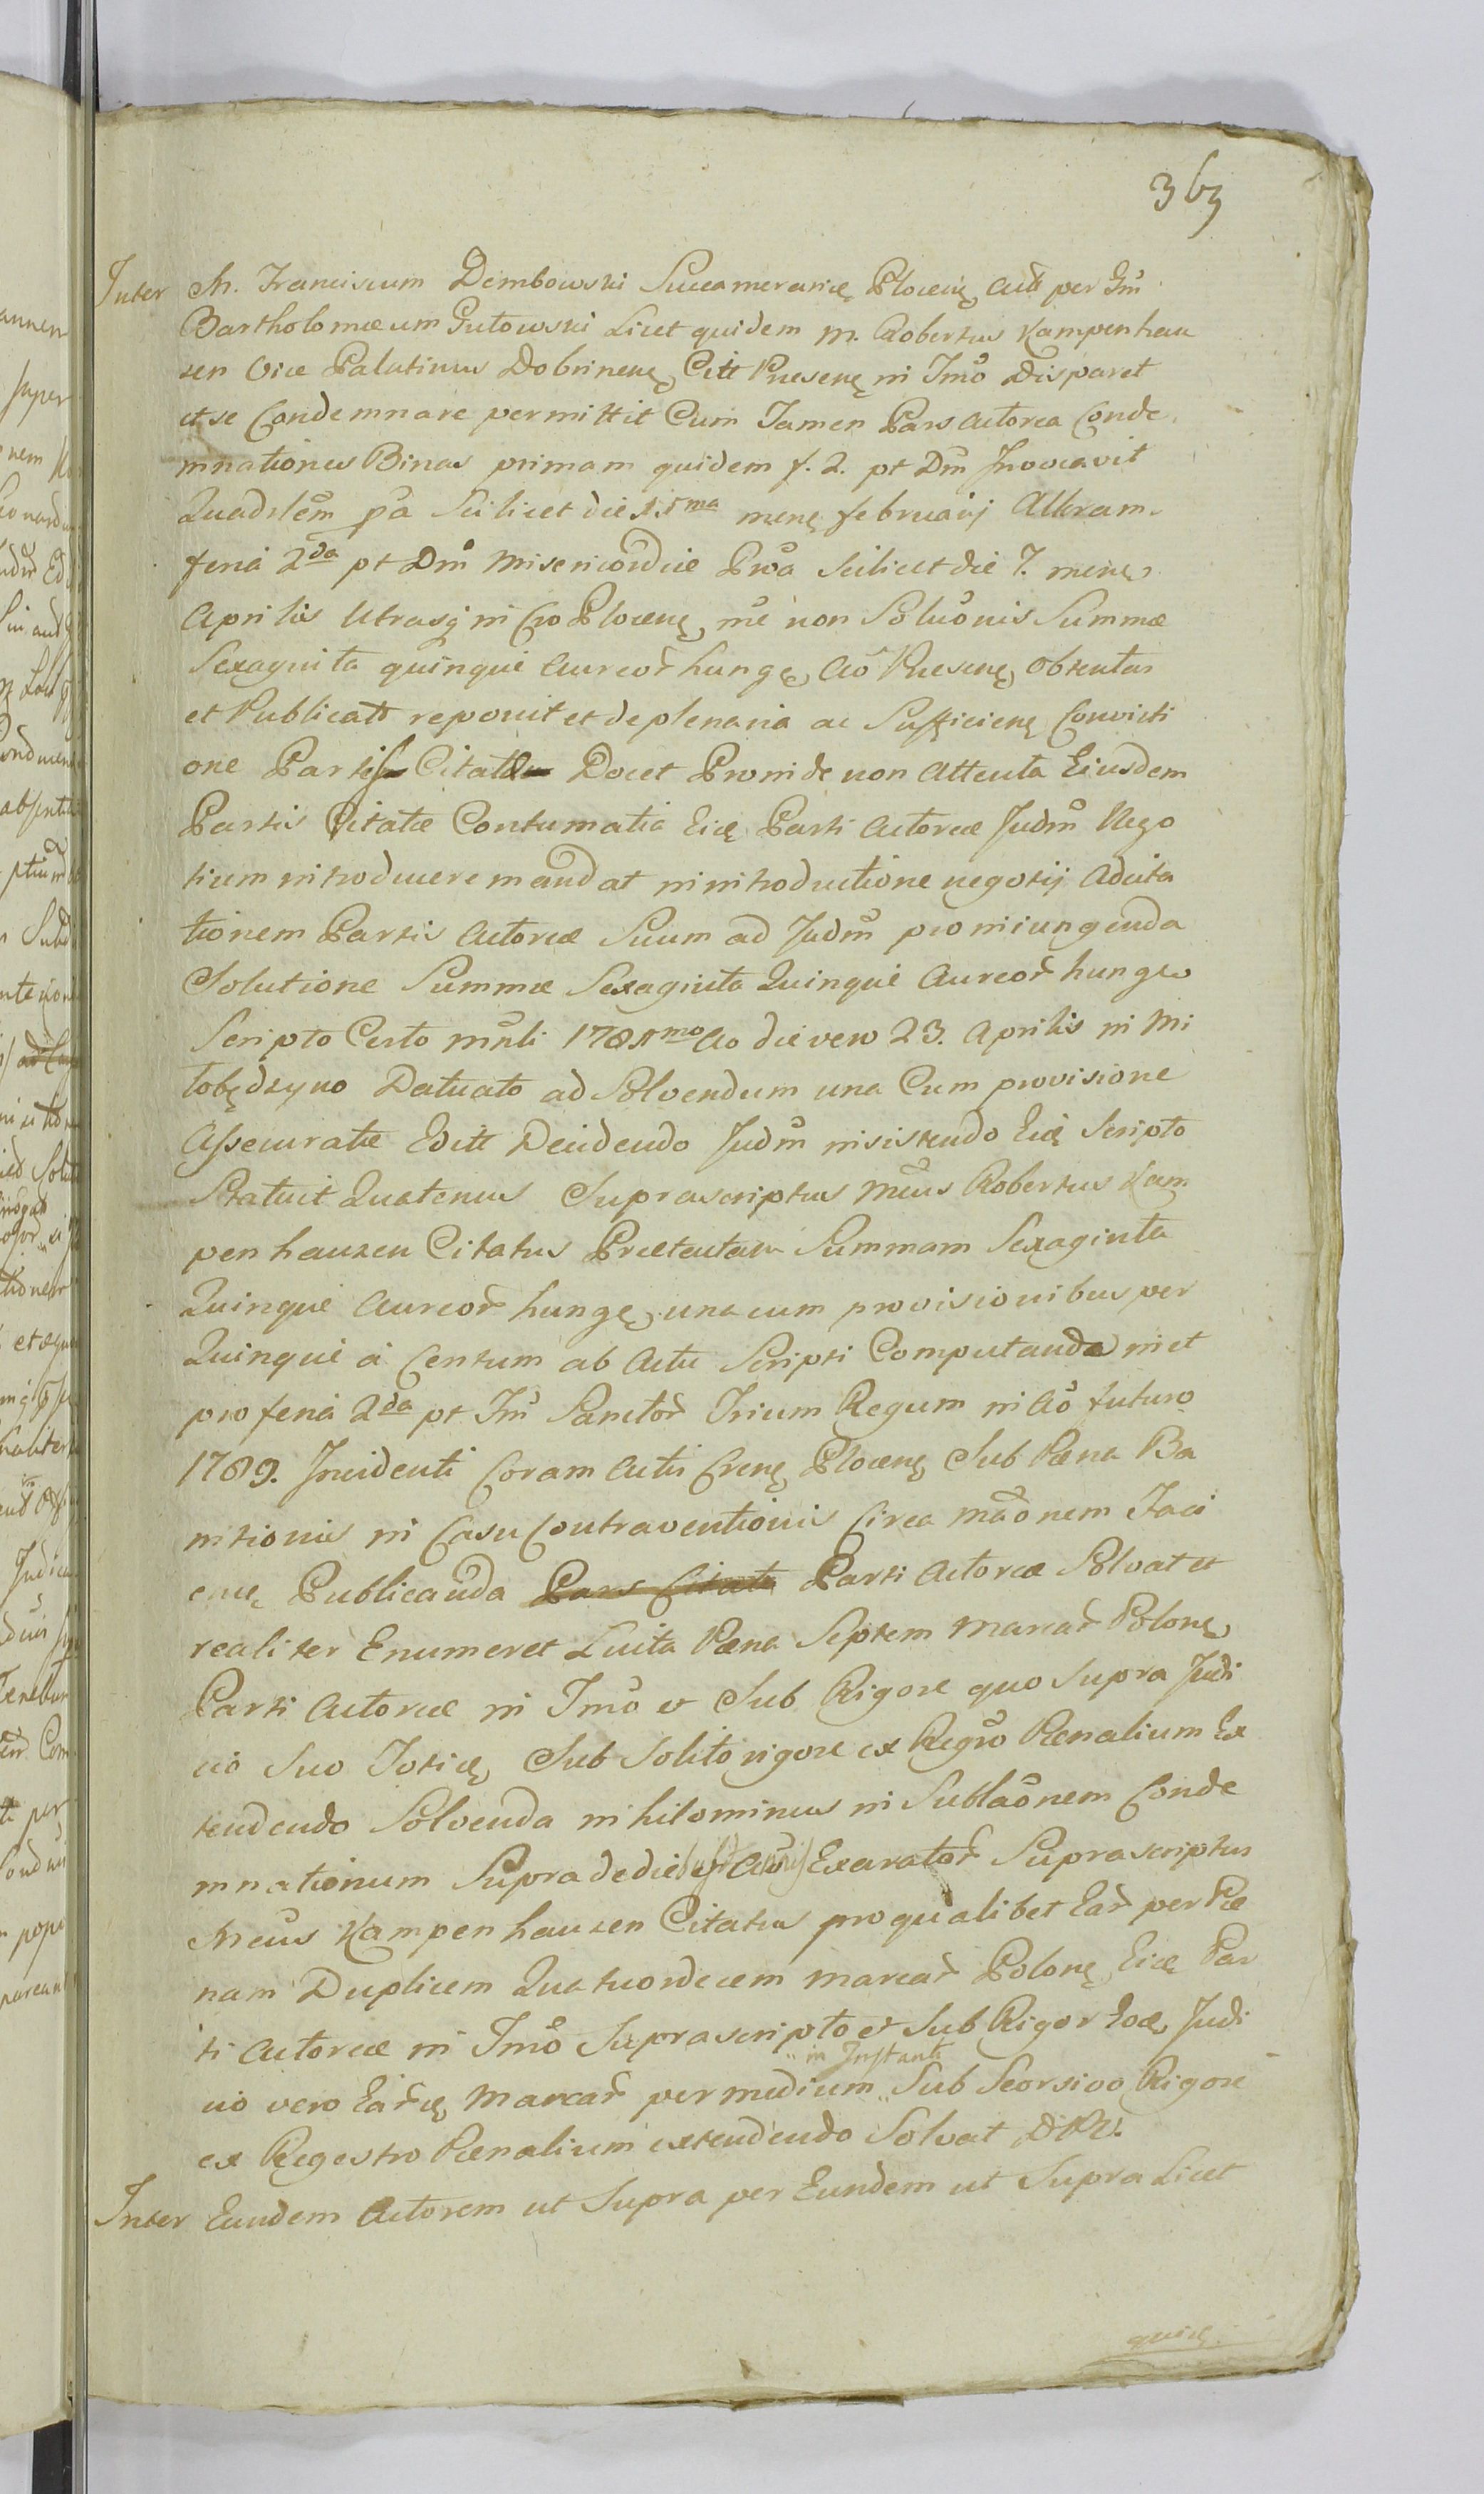 363
Inter M. Franciscum Dembowski Succamerarię Plocenę Act per Gm̃
Bartholomæum Gutowski Licet quidem M. Robertus Kampenhau
zen Vice Palatinus Dobrinenę Citt Præsenę in Tm̃o Disparet
et se Condemnare permittit Cum Tamen Pars Actorea Conde
mnationes Binas primam quidem f. 2. pt Dm̃ Invocavit
Quadrlem̃ pã Scilicet die 11ma menę februarij Alteram
feria 2da pt Dm̃ Misericordiæ Prõa Scilicet die 7. menę
Aprilis Utrasq in Cro Plocenę rñe non Soluõnis Summæ
Sexaginta quinque Aureor̃ hungę, Aõ Præsenę obtentas
et Publicatt reponit et de plenaria ac Sufficienę Convicti
one Partis Citatæ Docet Proinde non Attenta Eiusdem
Partis Citatæ Contumatia Eię Parti Actoreæ Judm̃ Nego
tium introducere mandat in introductione negotij Adcita
tionem Partis Actoreæ Suum ad Judm̃ pro iniungenda
Solutione Summæ Sexaginta Quinque Aureor̃ hungę
Scripto Certo mñli 1781mo Ao die vero 23. Aprilis in Mi
łobędzyno Datuato ad Solvendum una Cum provisione
Assecuratæ Editt Decidendo Judm̃ insistendo Eię Scripto
Statuit Quatenus Suprascriptus Mcũs Robertus Kam
penhauzen Citatus Prætentam Summam Sexaginta
Quinque Aureor̃ hungę, una cum provisionibus per
Quinque a Centum ab Actu Scripti Computanda in et
pro feria 2da pt Fm̃ Sanctor̃ Trium Regum in Aõ futuro
1789. Incidenti Coram Actis Crenę Plocenę Sub Pæna Ba
nitionis in Casu Contraventionis Circa mãonem Faci
enę Publicanda Pars Citata Parti Actoreæ Solvat et
realiter Enumeret Luita Pæna Septem Marcar̃ Polonę
Parti Actoreæ in Tm̃o et Sub Rigore quo Supra Judi
cio Suo Totię, Sub Solito rigore ex Regrõ Pænalium Ex
tendendo Solvenda nihilominus in Sublaõnem Conde
mnationum Supra de die Exarator̃ Suprascriptus
Mcus Kampenhauzen Citatus pro qualibet Ear̃ per Pæ
nam Duplicem Quatuordecem Marcar̃ Polonę, Eię Par
ti Actoreæ in Tm̃o Suprascripto et Sub Rigor Eoę, Judi
cio vero Ear̃ę Marcar̃ per medium in Instanti Sub Seorsivo Rigore
ex Regestro Pænalium extendendo Solvat DPV.
Inter Eundem Actorem ut Supra per Eundem ut Supra Licet
quię